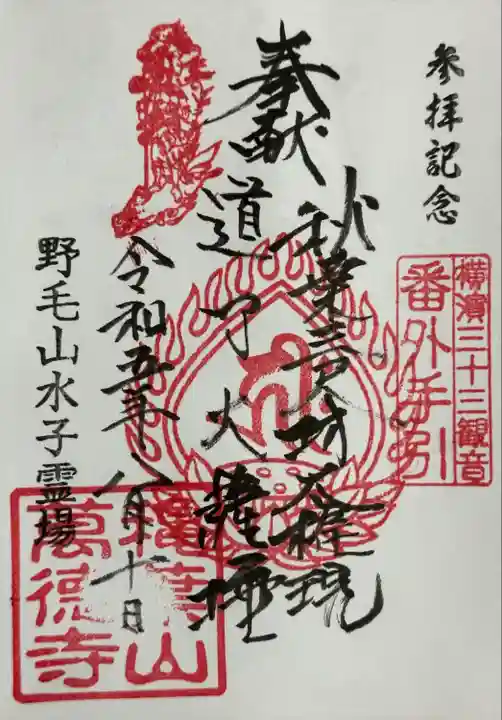 参拝記念
横濱三十三観音
番外手引
奉献
秋葉三尺坊大権現
道了大権現
令和五年八月十日
野毛山水子霊場
萬德寺